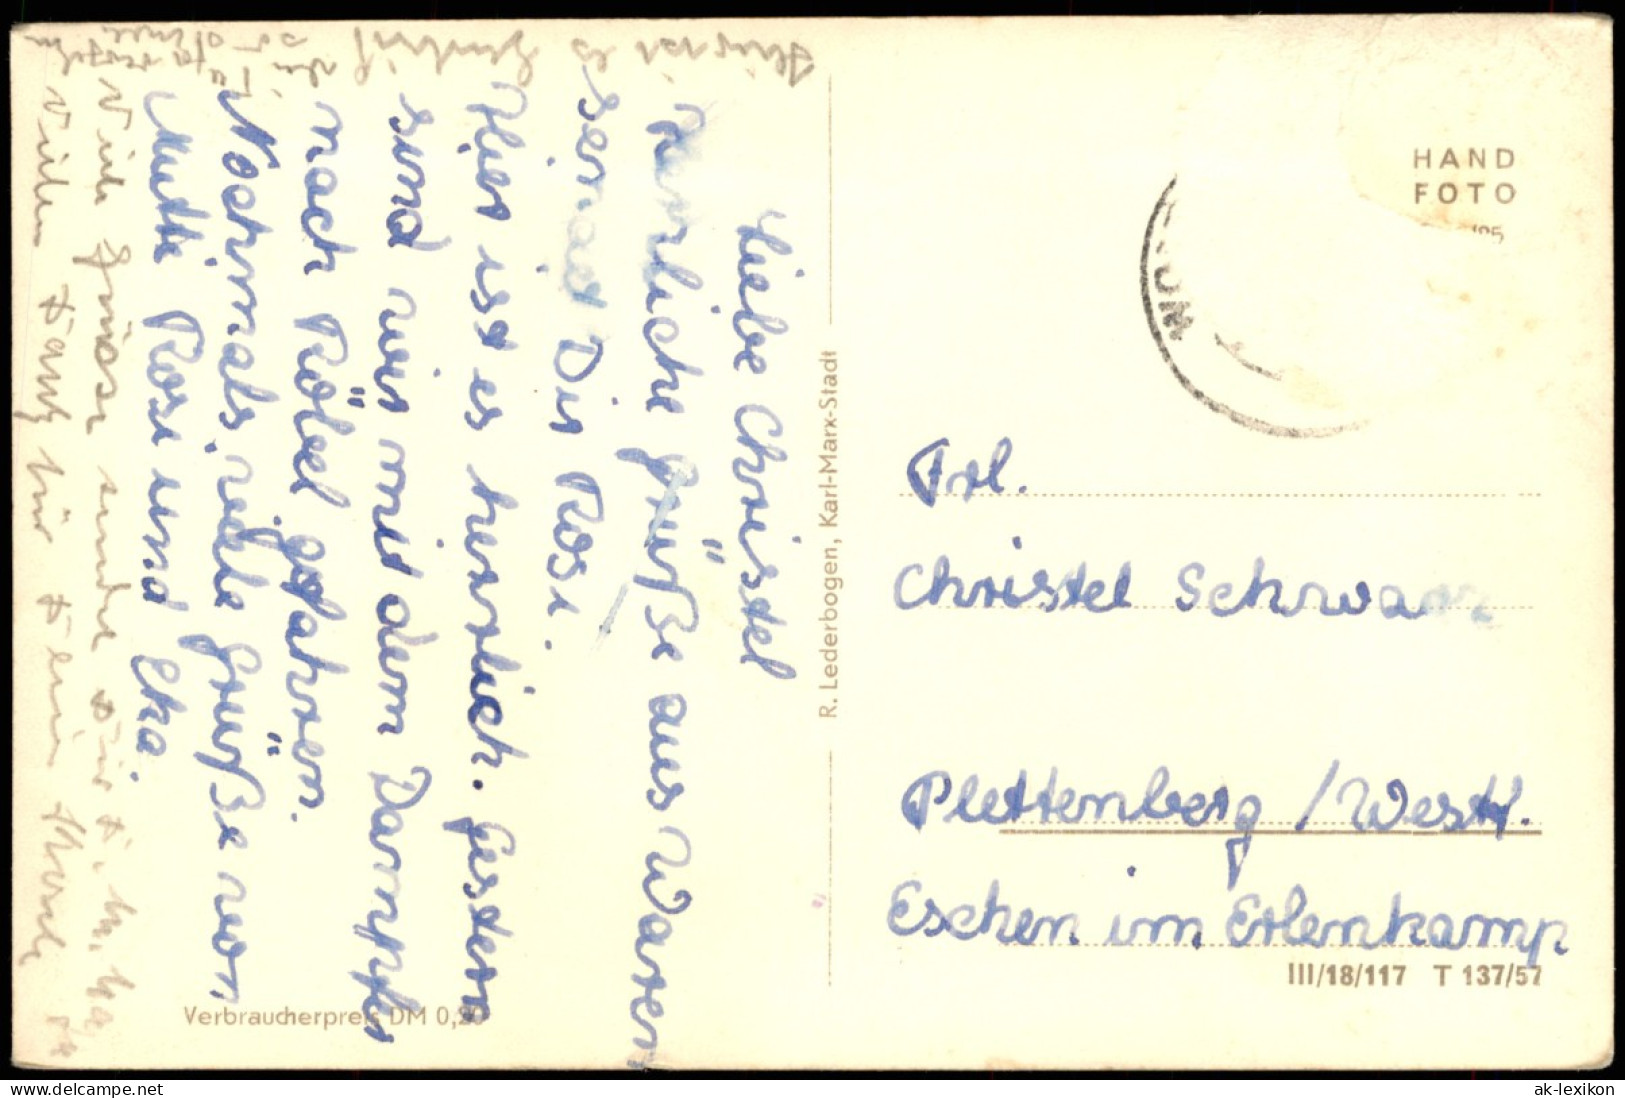 Liebe Christel
Herrliche Grüße aus Waren
sendet Dir Rosi.
Hier ist es herrlich. Gestern
sind wir mit dem Dampfer
nach Röbel gefahren.
Nochmals viele Grüße von
Mutti Rosi und Eka.
Viele Grüsse sendet Dir
Vielen Dank für Deine
R. Lederbogen, Karl-Marx-Stadt
Verbraucherpreis DM 0,20
HAND
FOTO
Frl.
Christel Schwarz
Plettenberg / Westf.
Eschen im Erlenkamp
III/18/117 T 137/57
www.delcampe.net
ak-lexikon